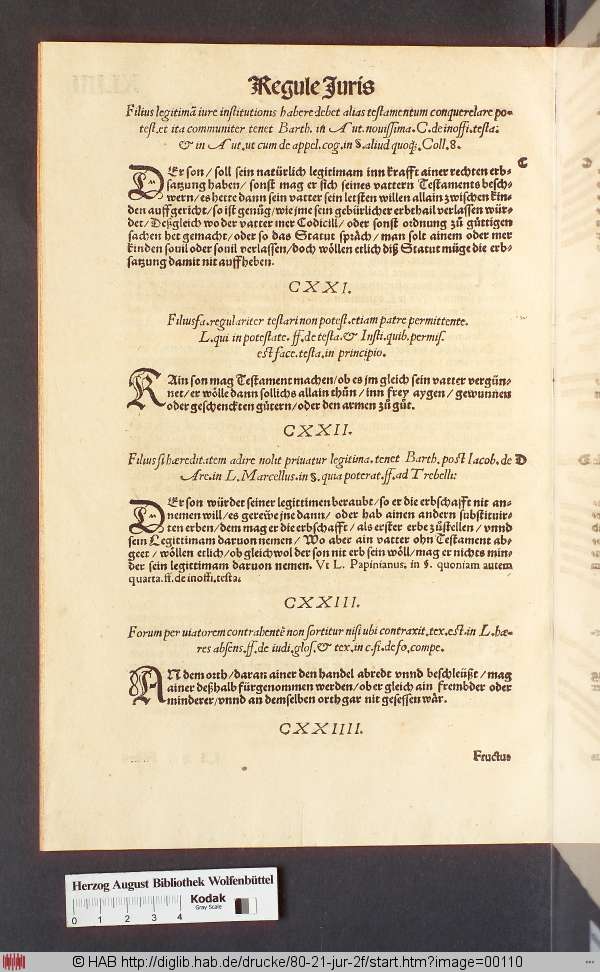 Regule Juris
Filius legitimã iure institutionis habere debet alias testamentum conquerelare po-
test. et ita communiter tenet Barth. in Aut. nouissima. C. de inoffi. testa:
& in Aut. ut cum de appel. cog. in §. aliud quoq;. Coll. 8.
C
DEr son / soll sein natürlich legitimam inn krafft ainer rechten erb-
satzung haben / sonst mag er sich seines vattern Testaments besch-
wern / es hette dann sein vatter sein letsten willen allain zwischen kin-
den auffgericht / so ist genůg / wie jme sein gebürlicher erbehail verlassen wür-
det / Deßgleich wo der vatter mer Codicill / oder sonst ordnung zů güttigen
sachen het gemacht / oder so das Statut sprách / man solt ainem oder mer
kinden souil oder souil verlassen / doch wöllen etlich diß Statut müge die erb-
satzung damit nit auffheben.
CXXI.
Filiusfa. regulariter testari non potest. etiam patre permittente.
L. qui in potestate. ff. de testa. & Insti. quib. permis.
est face. testa. in principio.
KAin son mag Testament machen / ob es jm gleich sein vatter vergün-
net / er wölle dann sollichs allain thůn / inn frey aygen / gewunnen
oder geschenckten gütern / oder den armen zů gůt.
CXXII.
Filius si hæreditatem adire nolit priuatur legitima. tenet Barth. post Iacob. de
D
Are. in L. Marcellus. in §. quia poterat. ff. ad Trebell:
DEr son würdet seiner legittimen beraubt / so er die erbschafft nit an-
nemen will / es gerẘe jne dann / oder hab ainen andern substituir-
ten erben / dem mag er die erbschafft / als erster erbe zůstellen / vnnd
sein Legittimam daruon nemen / Wo aber ain vatter ohn Testament ab-
geet / wöllen etlich / ob gleich wol der son nit erb sein wöll / mag er nichts min-
der sein legittimam daruon nemen. Vt L. Papinianus. in §. quoniam autem
quarta. ff. de inoffi. testa:
CXXIII.
Forum per uiatorem contrahentẽ non sortitur nisi ubi contraxit. tex. est. in L. hæ-
res absens. ff. de iudi. glos. & tex. in c. fi. de fo. compe.
AN dem orth / daran ainer den handel abredt vnnd beschleüßt / mag
ainer deßhalb fürgenommen werden / ob er gleich ain frembder oder
minderer / vnnd an demselben orth gar nit gesessen wår.
CXXIIII.
Fructus
Herzog August Bibliothek Wolfenbüttel
0 1 2 3 4
Kodak
Gray Scale
© HAB http://diglib.hab.de/drucke/80-21-jur-2f/start.htm?image=00110